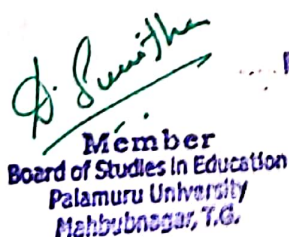 D. Sunitha
Member
Board of Studies in Education
Palamuru University
Mahbubnagar, T.G.